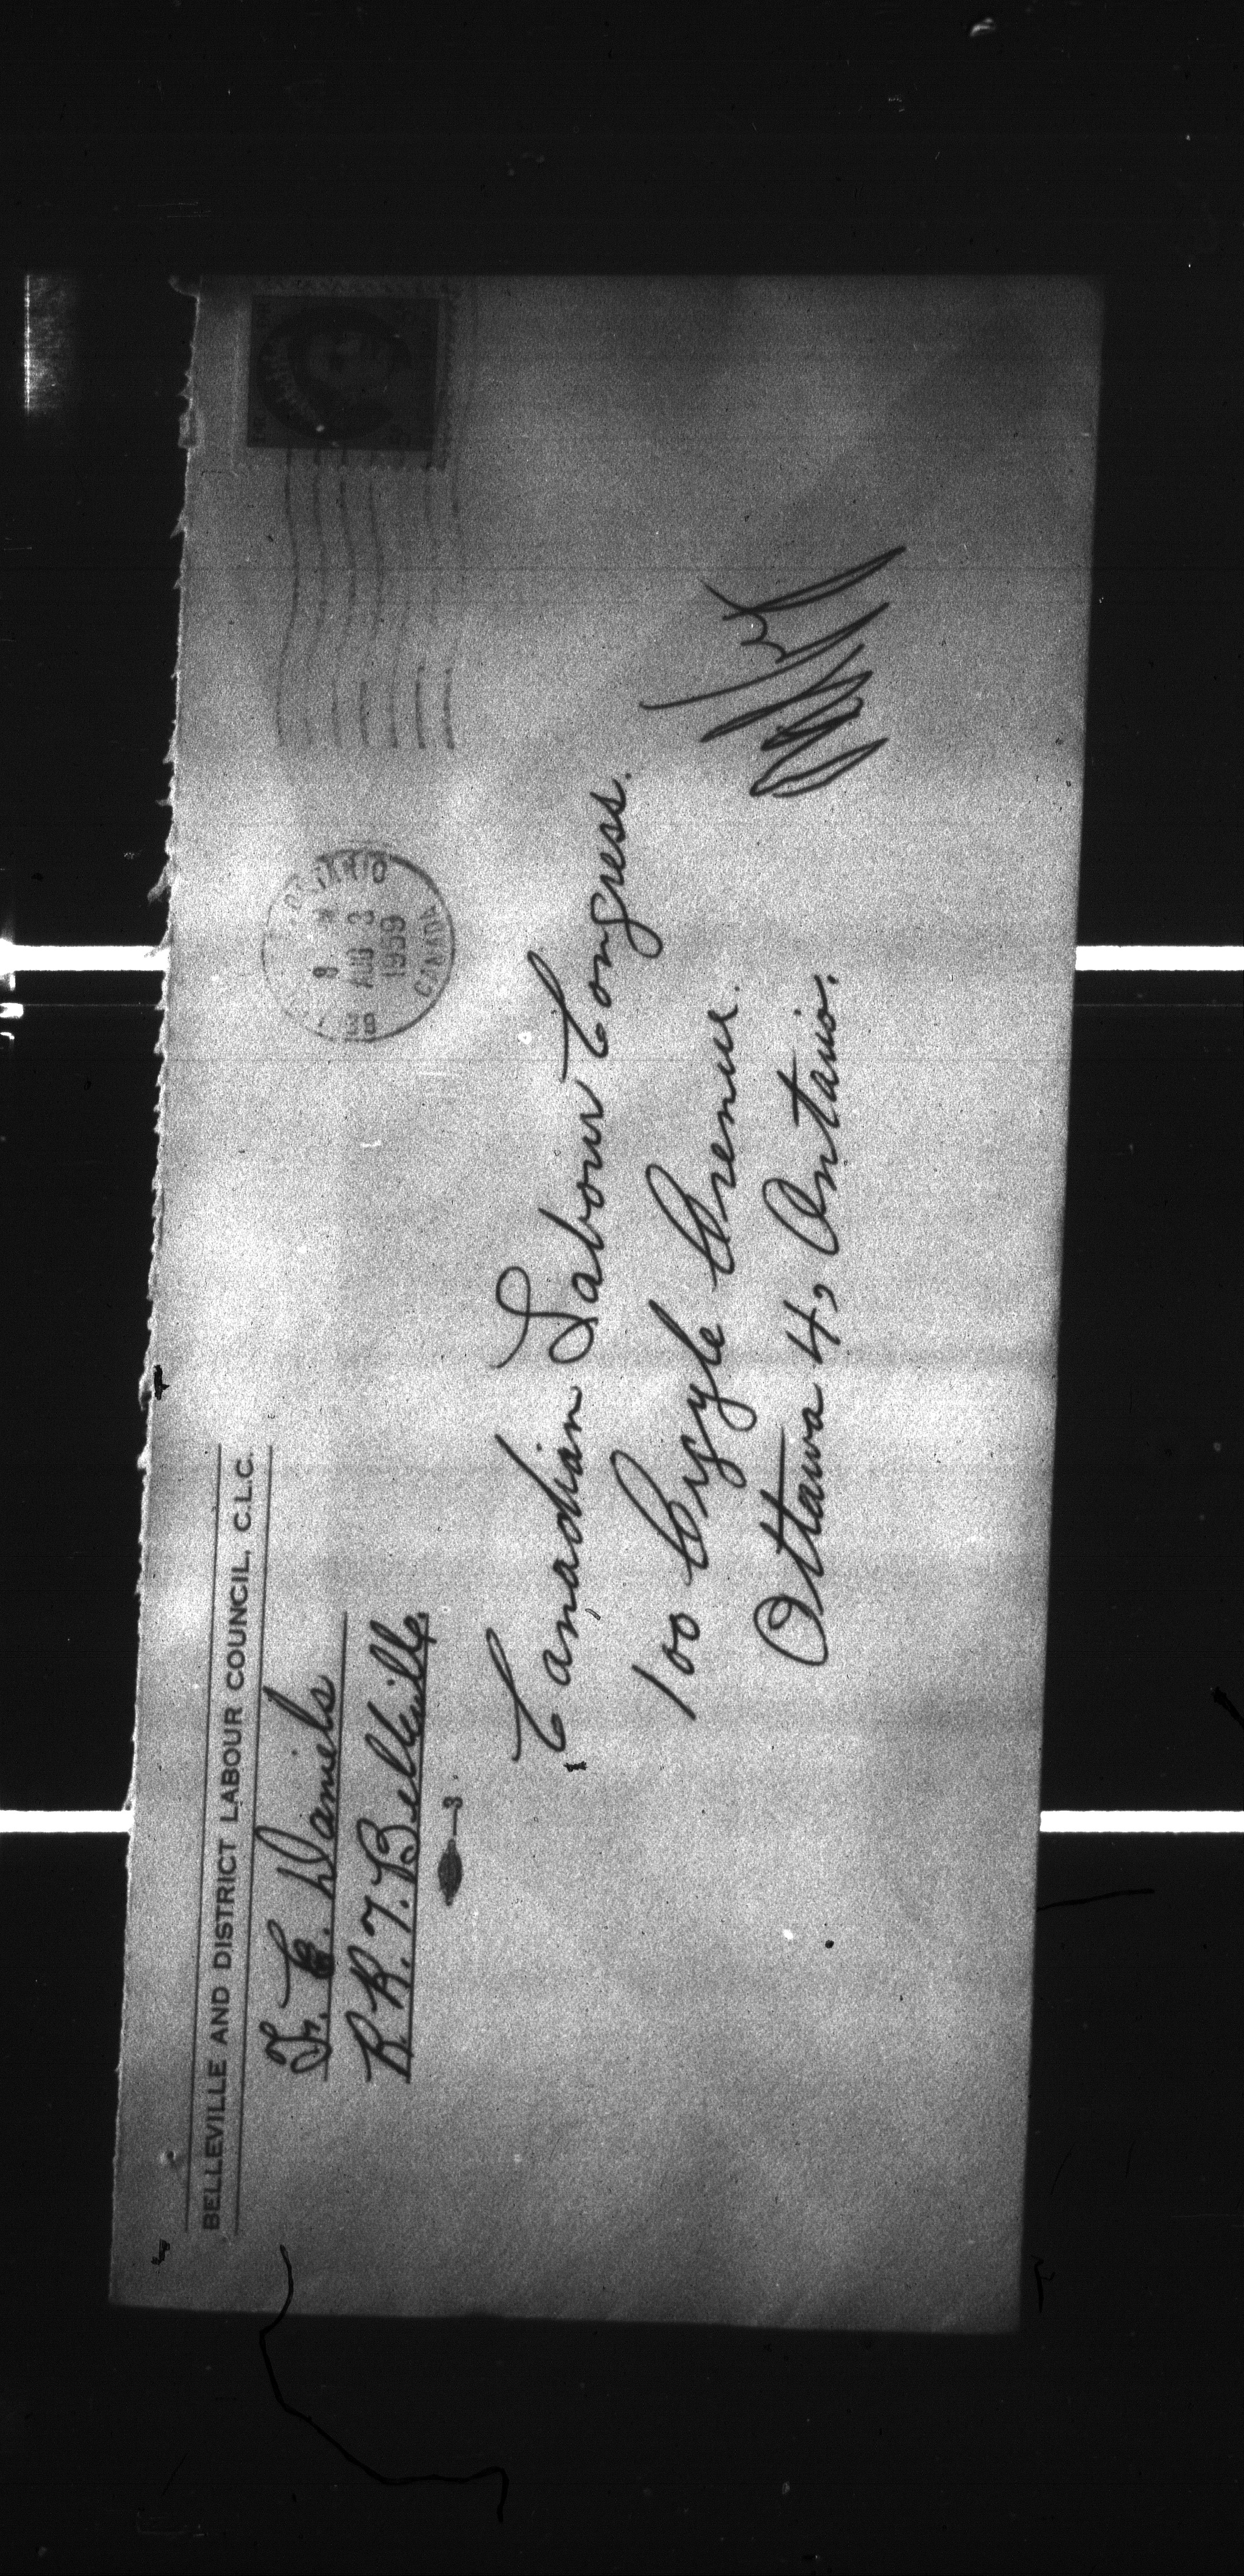 BELLEVILLE AND DISTRICT LABOUR COUNCIL, C.L.C.
Daniels
R.R.7. Belleville.
3
ONTARIO
8
AUG 3
1959
CANADA
Canadian Labour Congress.
100 Argyle Avenue.
Ottawa 4, Ontario.